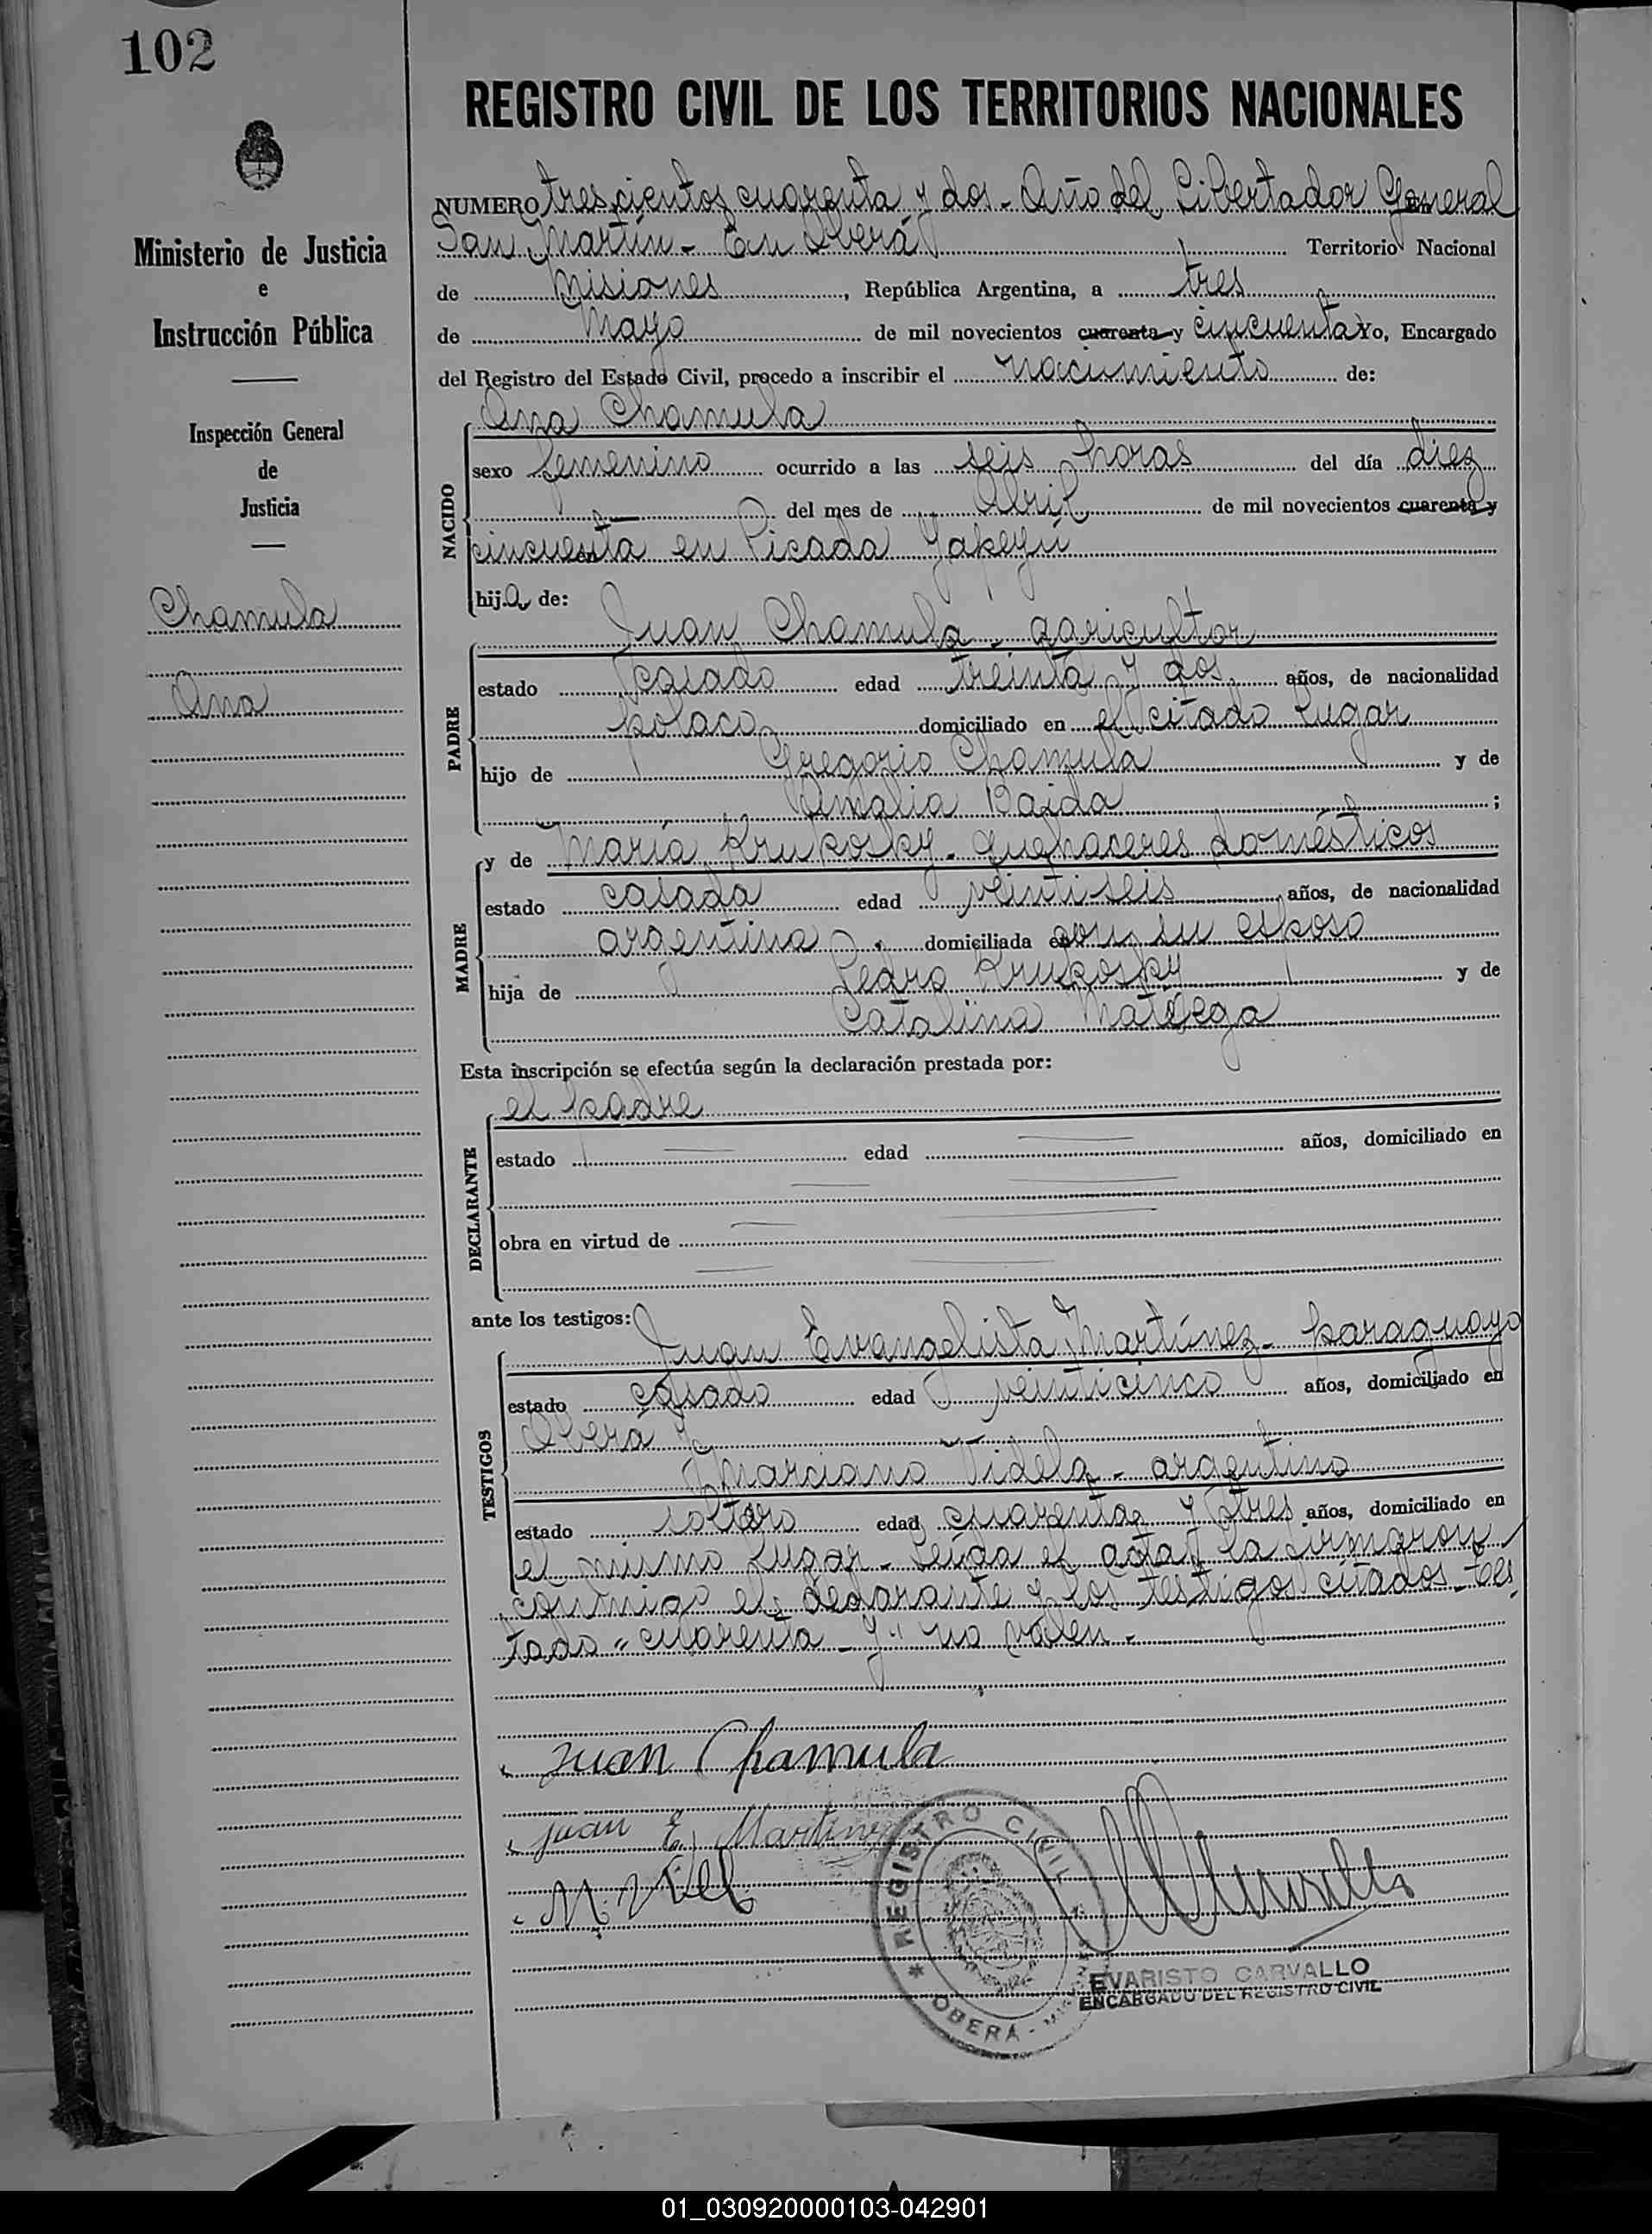 102
REGISTRO CIVIL DE LOS TERRITORIOS NACIONALES
Ministerio de Justicia
e
Instrucción Pública
Inspección General
de
Justicia
Chamula
Ana
NUMERO trescientos cuarenta y dos - Año del Libertador General
San Martín - En Oberá Territorio Nacional
de Misiones, República Argentina, a tres
de Mayo de mil novecientos cuarenta y cincuenta Yo, Encargado
del Registro del Estado Civil, procedo a inscribir el nacimiento de:
Ana Chamula
NACIDO
sexo femenino ocurrido a las seis horas del día diez
del mes de Abril de mil novecientos cuarenta y
cincuenta en Picada Yapeyú
hija de:
Juan Chamula - agricultor
PADRE
estado casado edad treinta y dos años, de nacionalidad
polaco domiciliado en el citado lugar
hijo de Gregorio Chamula y de
Amalia Baida;
MADRE
y de María Krukosky - quehaceres domésticos
estado casada edad veintiseis años, de nacionalidad
argentina domiciliada con su esposo
hija de Pedro Krukosky y de
Catalina
Esta inscripción se efectúa según la declaración prestada por:
el padre
DECLARANTE
estado edad años, domiciliado en
obra en virtud de
ante los testigos:
Juan Evangelista Martínez - paraguayo
TESTIGOS
estado casado edad veinticinco años, domiciliado en
Oberá y
Marciano Videla - argentino
estado soltero edad cuarenta y tres años, domiciliado en
el mismo lugar - Leída el acta, la firmaron
conmigo el declarante y los testigos citados - Tes
tado "cuarenta - y" no valen -
Juan Chamula
Juan E. Martinez
REGISTRO CIVIL
OBERÁ -
EVARISTO CARVALLO
ENCARGADO DEL REGISTRO CIVIL
01_030920000103-042901